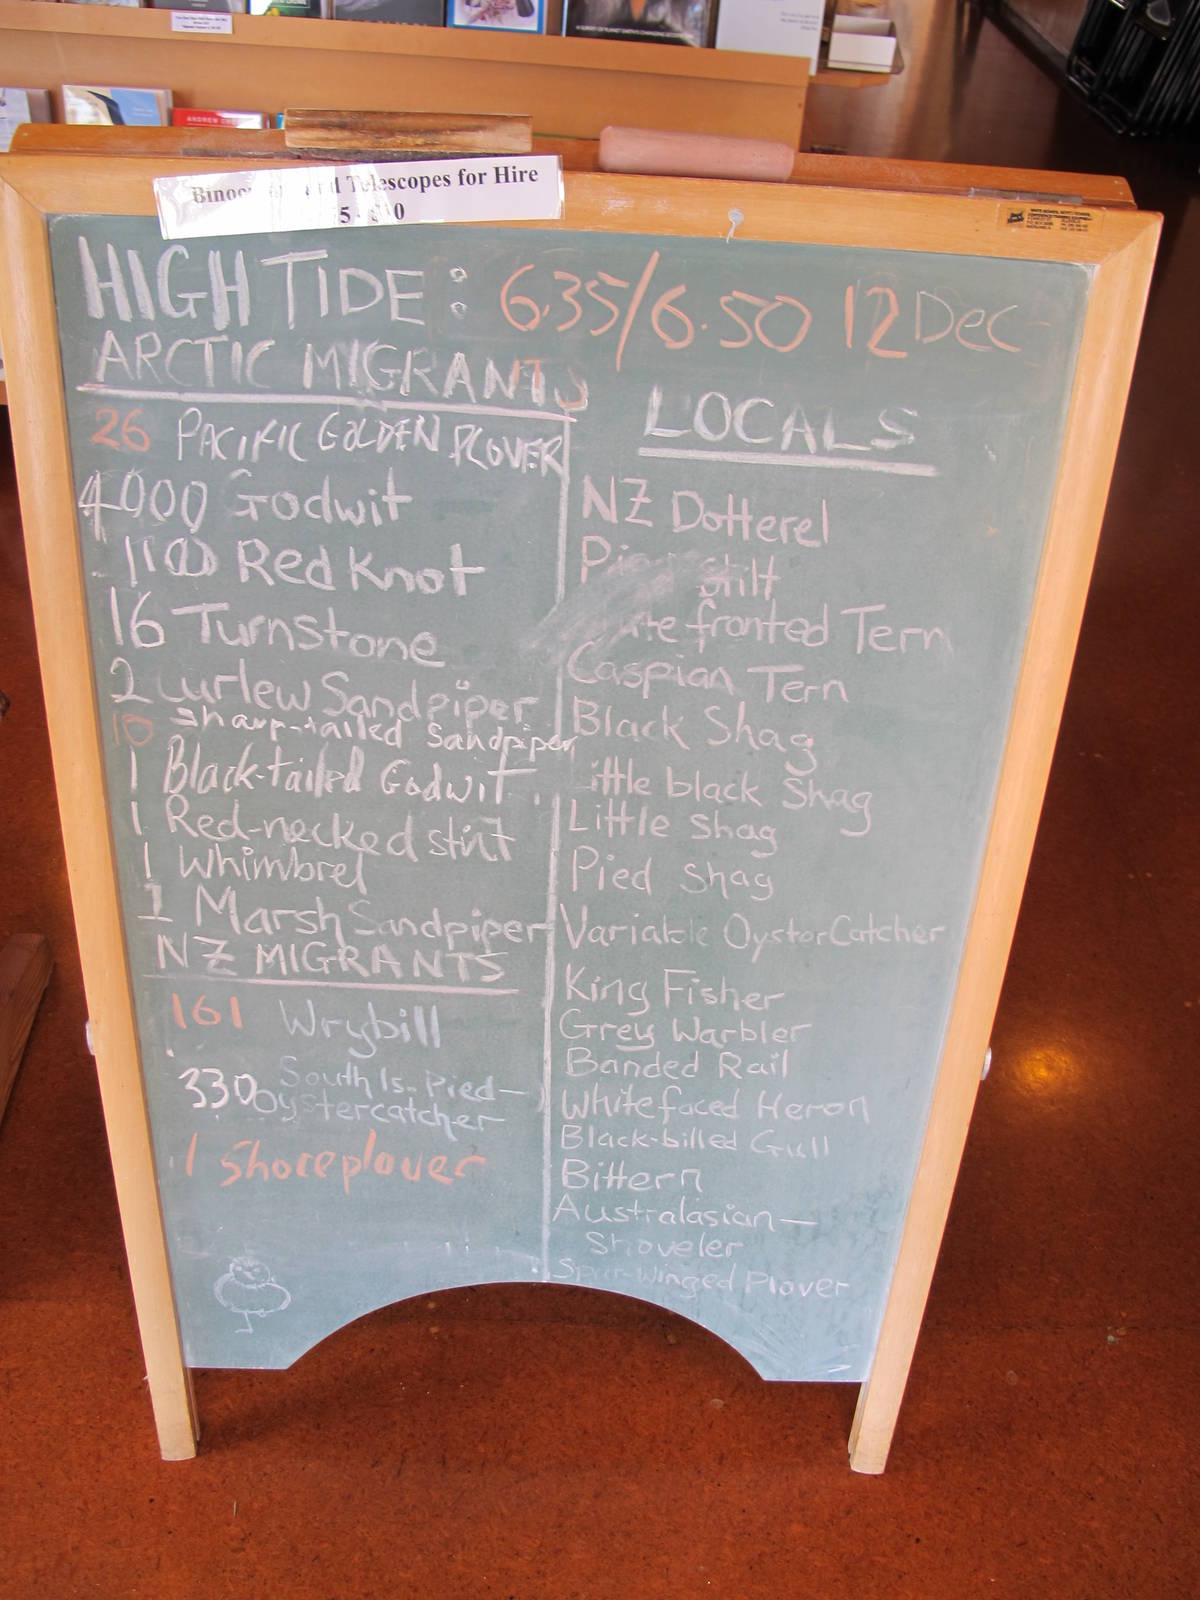 Telescopes for Hire
HIGH TIDE: 6.35/6.50 12 Dec
ARCTIC MIGRANTS
26 PACIFIC GOLDEN PLOVER
4000 Godwit
1100 Red Knot
16 Turnstone
2 Curlew Sandpiper
10 Sharp-tailed Sandpiper
1 Black-tailed Godwit
1 Red-necked stint
1 Whimbrel
1 Marsh Sandpiper
NZ MIGRANTS
161 Wrybill
330 South Is. Pied-
Oystercatcher
1 Shoreplover
LOCALS
NZ Dotterel
Stilt
fronted Tern
Caspian Tern
Black Shag
Little black Shag
Little Shag
Pied Shag
Variable OysterCatcher
King Fisher
Grey Warbler
Banded Rail
White faced Heron
Black-billed Gull
Bittern
Australasian-
Shoveler
Spur-winged Plover